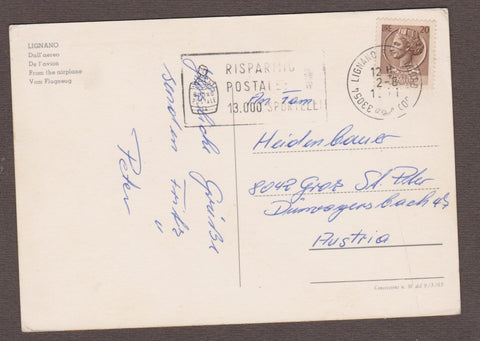 LIGNANO
Dall'aereo
De l'avion
From the airplane
Vom Flugzeug
RISPARMIO
POSTALE
13.000 SPORTELLI
LIRE 20
33054 LIGNANO
Herzliche Grüße
senden Fritz
u
Peter
An Fam.
Heidenbauer
8042 Graz St. Peter
Austria
Concessione n.